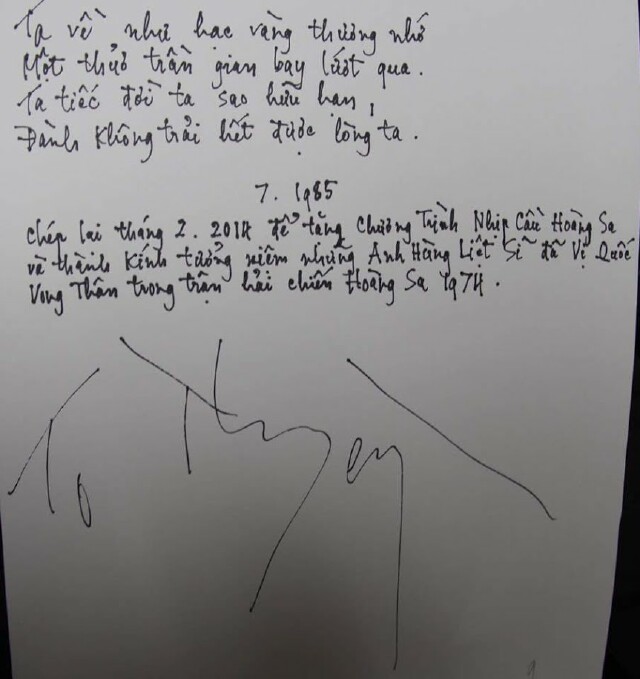 Ta về như hạc vàng thương nhớ
Một thuở trần gian bay lướt qua.
Ta tiếc đời ta sao hữu hạn,
Đành không trải hết được lòng ta.
7. 1985
Chép lại tháng 2. 2014 để tặng Chương Trình Nhịp Cầu Hoàng Sa
và thành kính tưởng niệm những Anh Hùng Liệt Sĩ đã Vị Quốc
Vong Thân trong trận hải chiến Hoàng Sa 1974.
Tô Thùy Yên